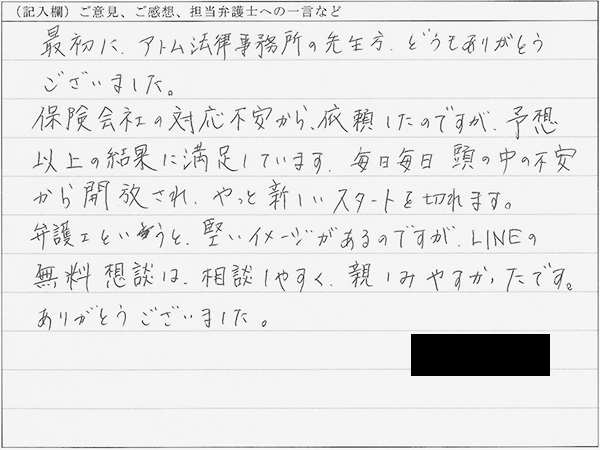 (記入欄)ご意見、ご感想、担当弁護士への一言など
最初に、アトム法律事務所の先生方、どうもありがとう
ございました。
保険会社の対応不安から、依頼したのですが、予想
以上の結果に満足しています。毎日毎日 頭の中の不安
から開放され、やっと新しいスタートを切れます。
弁護士というと、堅いイメージがあるのですが、LINEの
無料想談は、相談しやすく、親しみやすかったです。
ありがとうございました。